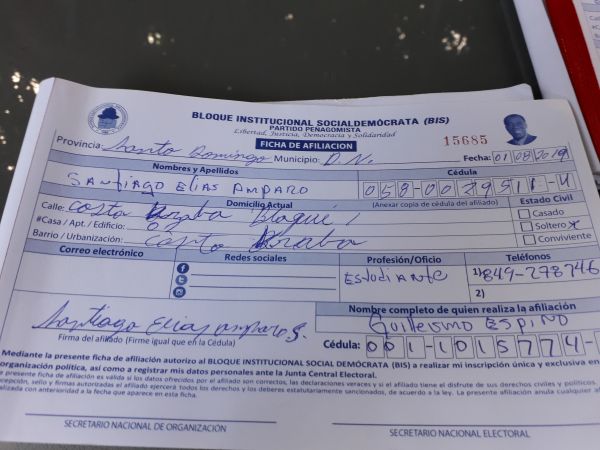 BLOQUE INSTITUCIONAL SOCIALDEMÓCRATA (BIS)
PARTIDO PEÑAGOMISTA
Libertad, Justicia, Democracia y Solidaridad
FICHA DE AFILIACION
15685
Provincia: Santo Domingo Municipio: D.N. Fecha: 01 08 2019
Nombres y Apellidos Cédula
SANTIAGO ELIAS AMPARO 058-00
Domicilio Actual (Anexar copia de cédula del afiliado) Estado Civil
Calle: Costa
#Casa / Apt. / Edificio:
Barrio / Urbanización: Costa
Casado
Soltero
Conviviente
Correo electrónico Redes sociales Profesión/Oficio Teléfonos
ESTUDIANTE 1) 849-778746
2)
Nombre completo de quien realiza la afiliación
Guillermo ESPINO
Santiago Elias Amparo S.
Firma del afiliado (Firme igual que en la Cédula)
Cédula: 001-1015774-
Mediante la presente ficha de afiliación autorizo al BLOQUE INSTITUCIONAL SOCIAL DEMÓCRATA (BIS) a realizar mi inscripción única y exclusiva en
organización política, así como a registrar mis datos personales ante la Junta Central Electoral.
presente ficha de afiliación es válida si los datos ofrecidos por el afiliado son correctos, las declaraciones veraces y si el afiliado tiene el disfrute de sus derechos civiles y políticos.
cepción, sello y firmas autorizadas el afiliado ejercerá todos los derechos y los deberes estatutariamente sancionados, de acuerdo a la ley. La presente afiliación anula cualquier
alizada con anterioridad a la fecha que aparece en esta ficha.
SECRETARIO NACIONAL DE ORGANIZACIÓN SECRETARIO NACIONAL ELECTORAL